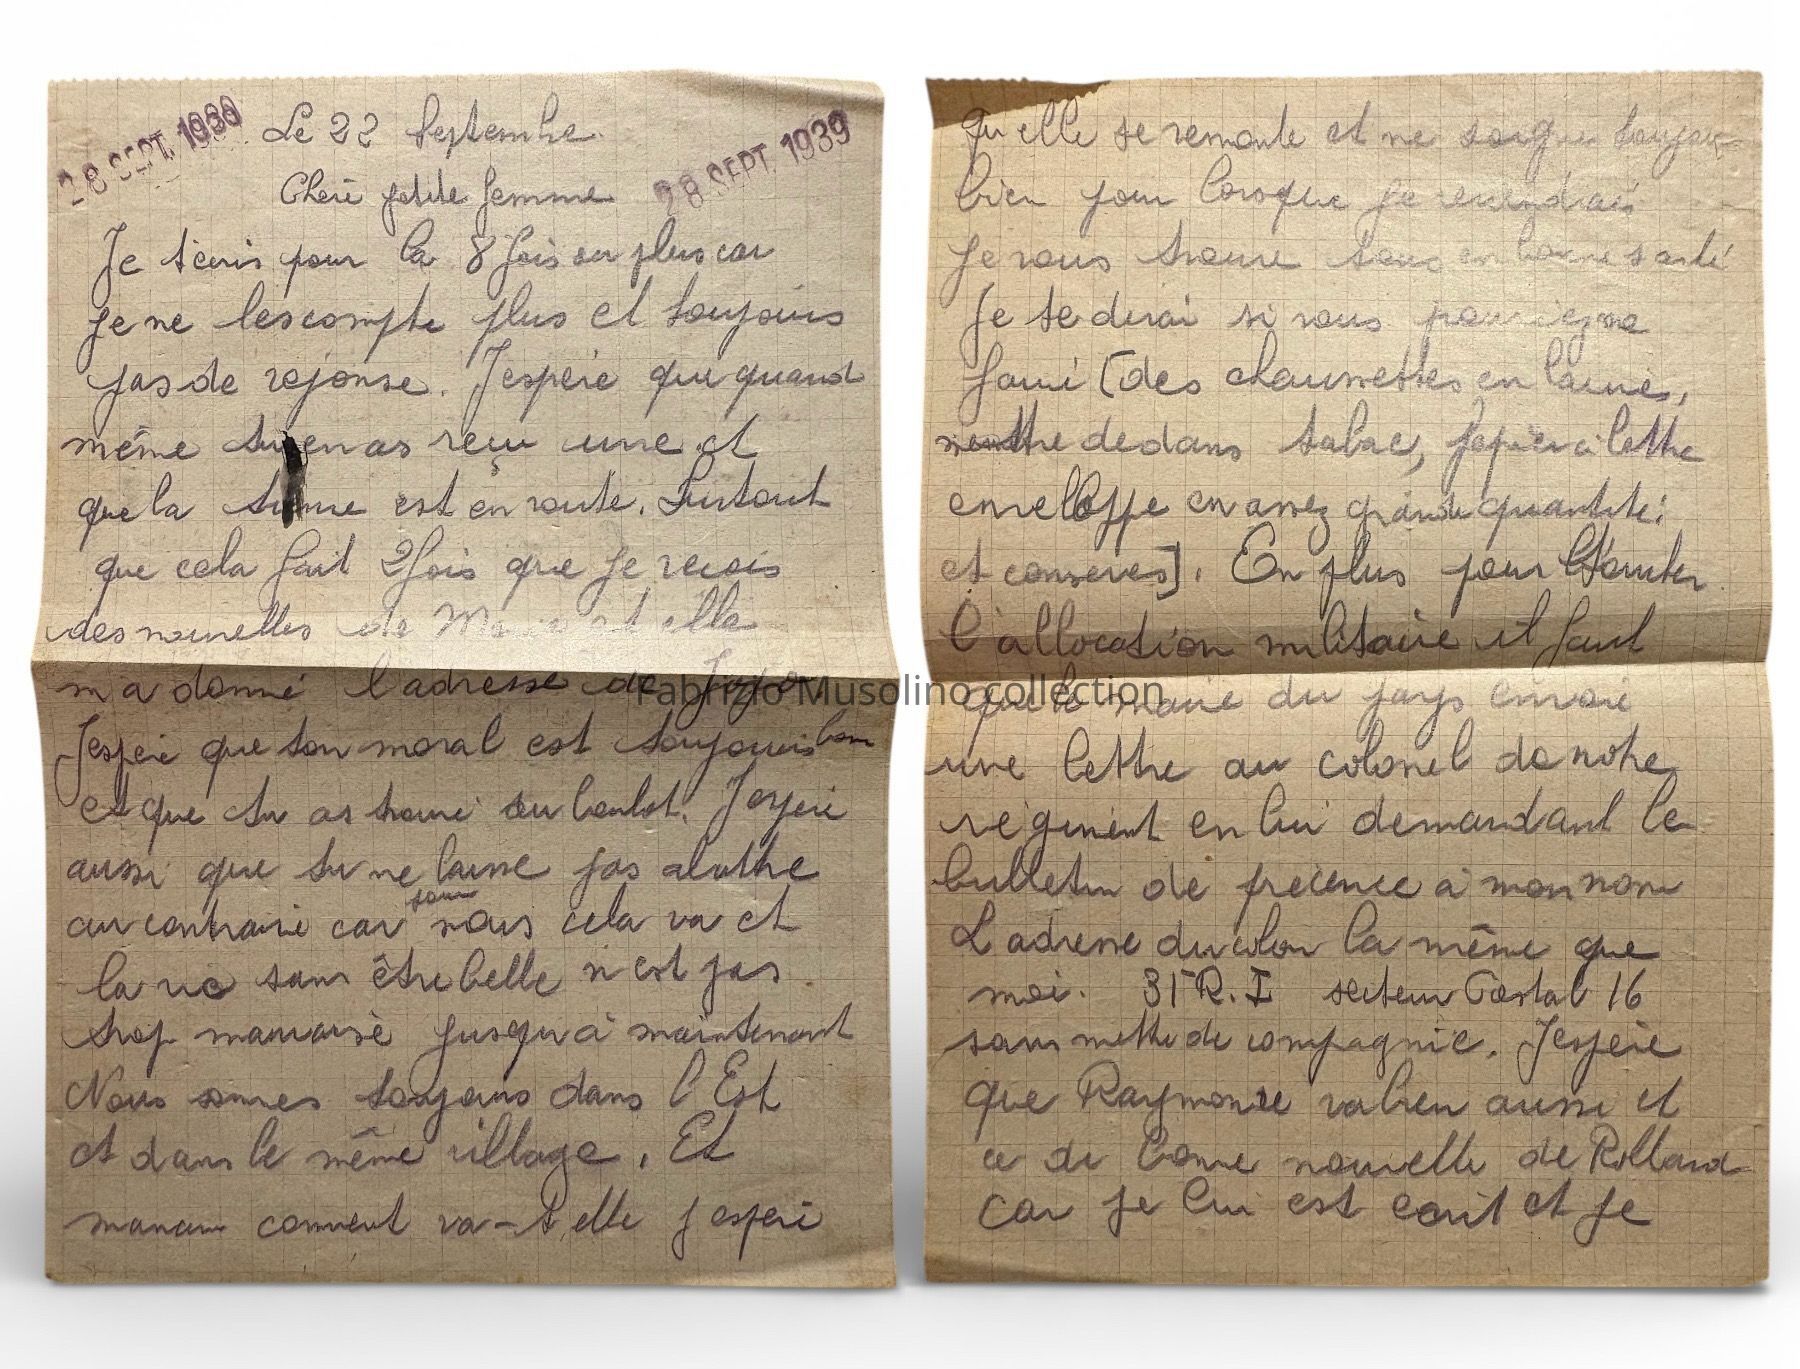 28 SEPT. 1939
28 SEPT. 1939
Le 22 Septembre
Cheri petite femme
Je t'ecris pour la 8 fois ou plus car
je ne les compte plus et toujours
pas de reponse. J'espère que quand
même tu en as reçu une et
que la tienne est en route. Surtout
que cela fait 2 fois que je recois
des nouvelles de et elle
m'a donné l'adresse de
J'espere que ton moral est toujours bon
et que tu as trouvé du boulot. J'espere
aussi que tu ne laisse pas abattre
au contraire car pour nous cela va et
la vie sans être belle n'est pas
trop mauvaise jusqu'à maintenant
Nous sommes toujours dans l'Est
et dans le même village. Et
maman comment va-t-elle j'esperé
qu'elle se remonte et se soigne toujours
bien pour lorsque je reviendrai
je vous trouve tous en bonne santé
Je te dirai si vous
(des chaussettes en laine,
mettre dedans tabac, papier à lettre
enveloppe en assez grande quantité
et conserves]. En plus pour
l'allocation militaire il faut
que le maire du pays envoie
une lettre au colonel de notre
régiment en lui demandant le
bulletin de précence à mon nom
L'adresse du colon la même que
moi. 31e R.I secteur Postal 16
sans mettre de compagnie. J'espère
que Raymonde va bien aussi et
a de bonne nouvelle de Rolland
car je lui est ecrit et je
Fabrizio Musolino collection